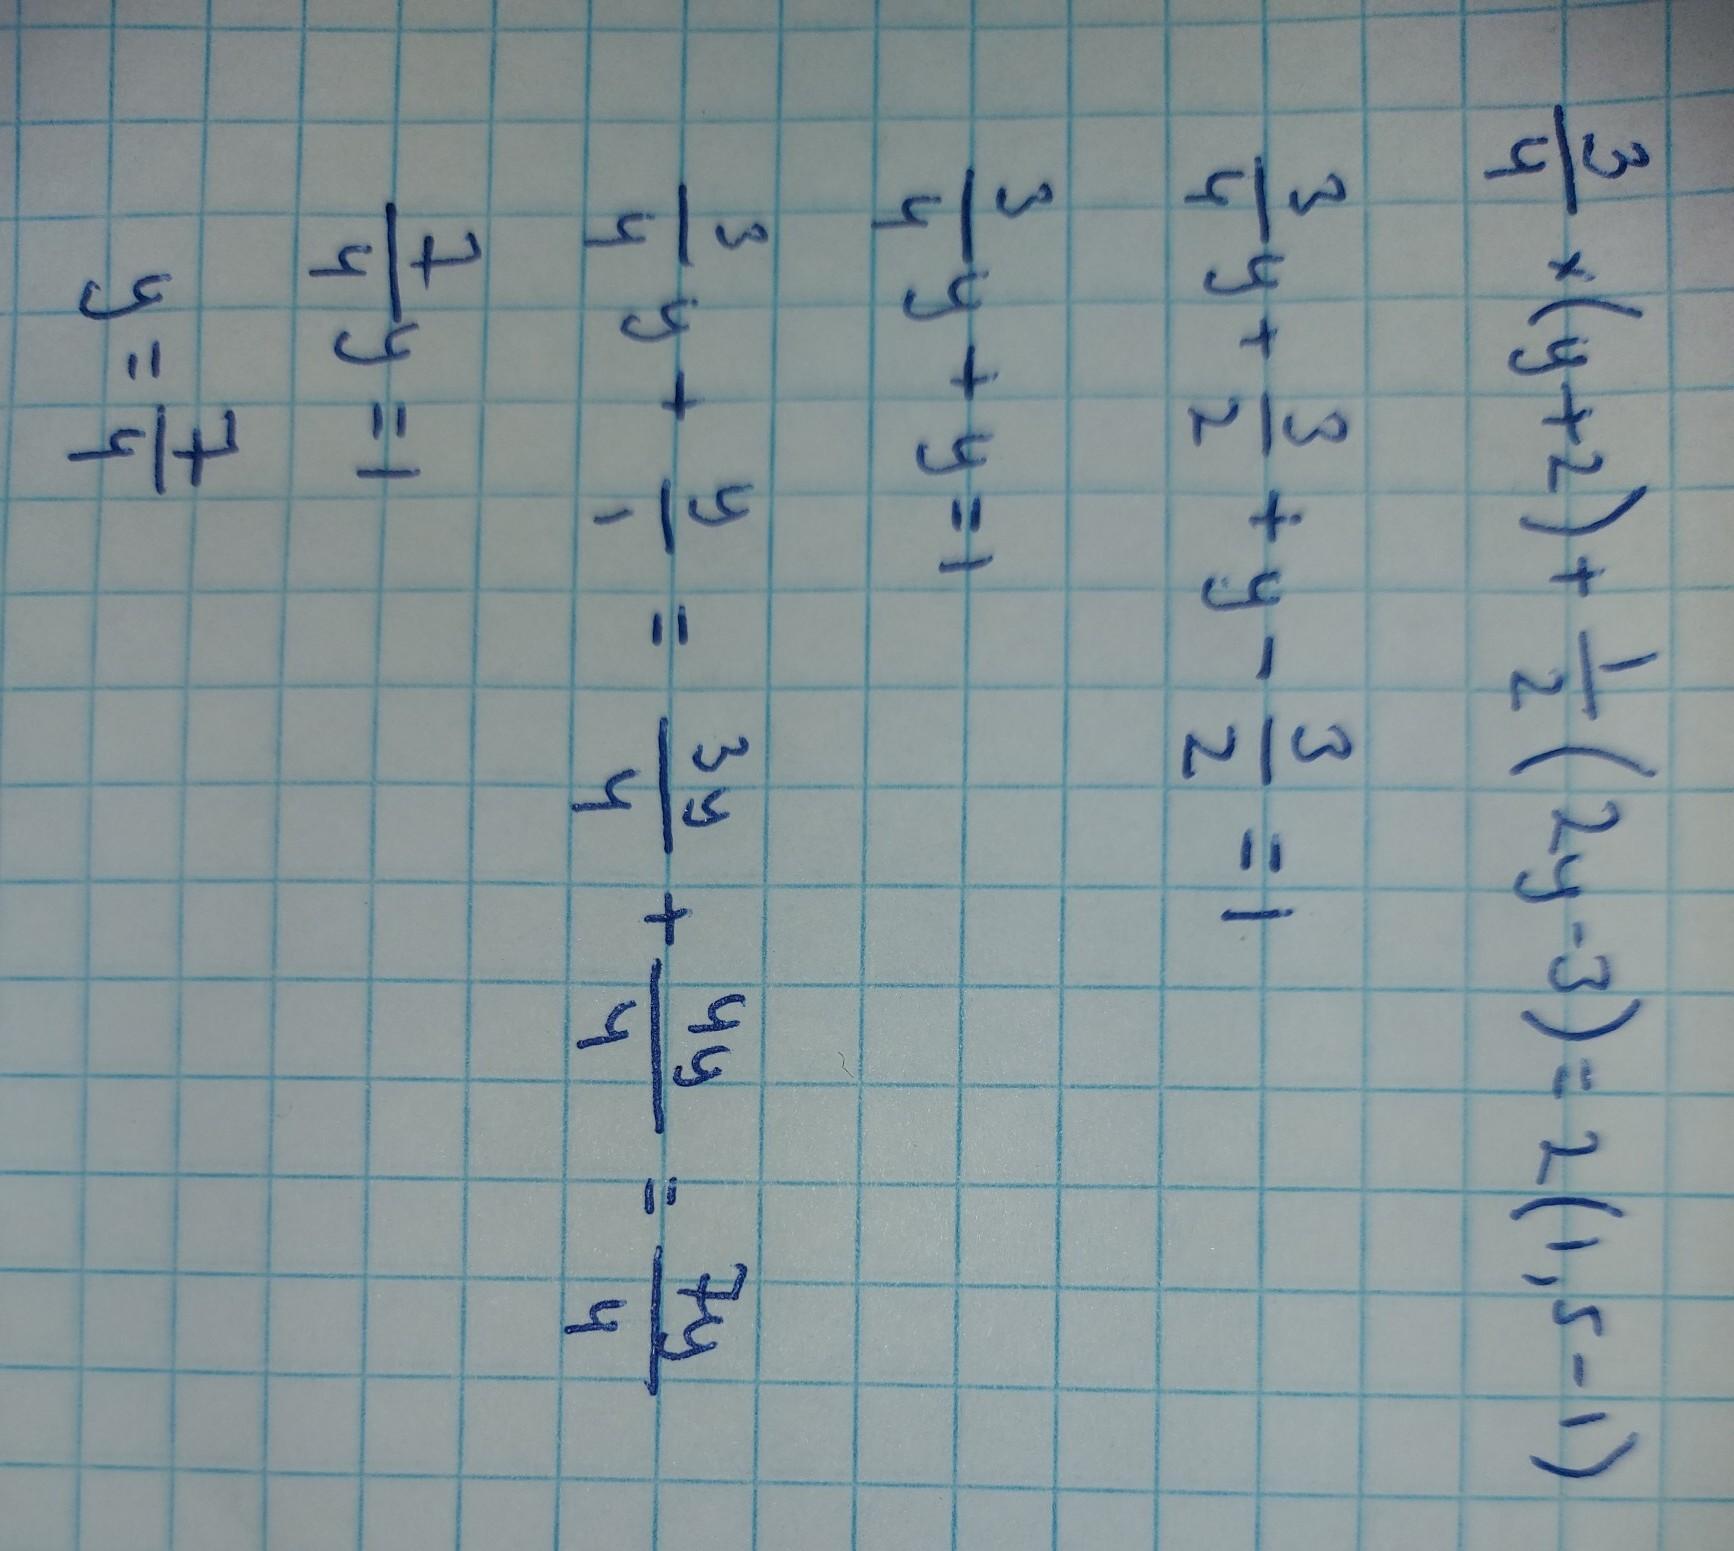 3/4 × (y+2) + 1/2 (2y-3) = 2(1,5-1)
3/4 y + 3/2 + y - 3/2 = 1
3/4 y + y = 1
3/4 y + y/1 = 3y/4 + 4y/4 = 7y/4
7/4 y = 1
y = 7/4